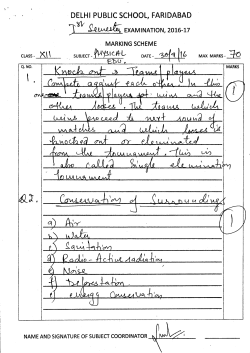 DELHI PUBLIC SCHOOL, FARIDABAD
Ist Semester EXAMINATION, 2016-17
MARKING SCHEME
CLASS - XII SUBJECT: PHYSICAL EDU. DATE - 30/9/16 MAX MARKS : 70
Q. NO. MARKS
1. Knock out : Teams players
Compete against each other. In this
one team / players wins and the
other loses. The teams which
wins proceed to next round of
matches and which loses is
knocked out or eleminated
from the tournament. This is
also called Single elemination
Tournament. 1
Q2. Conservation of Surroundings
a) Air 1
b) Water
c) Sanitation
d) Radio-Active radiation
e) Noise
f) Deforestation
energy Conservation
NAME AND SIGNATURE OF SUBJECT COORDINATOR